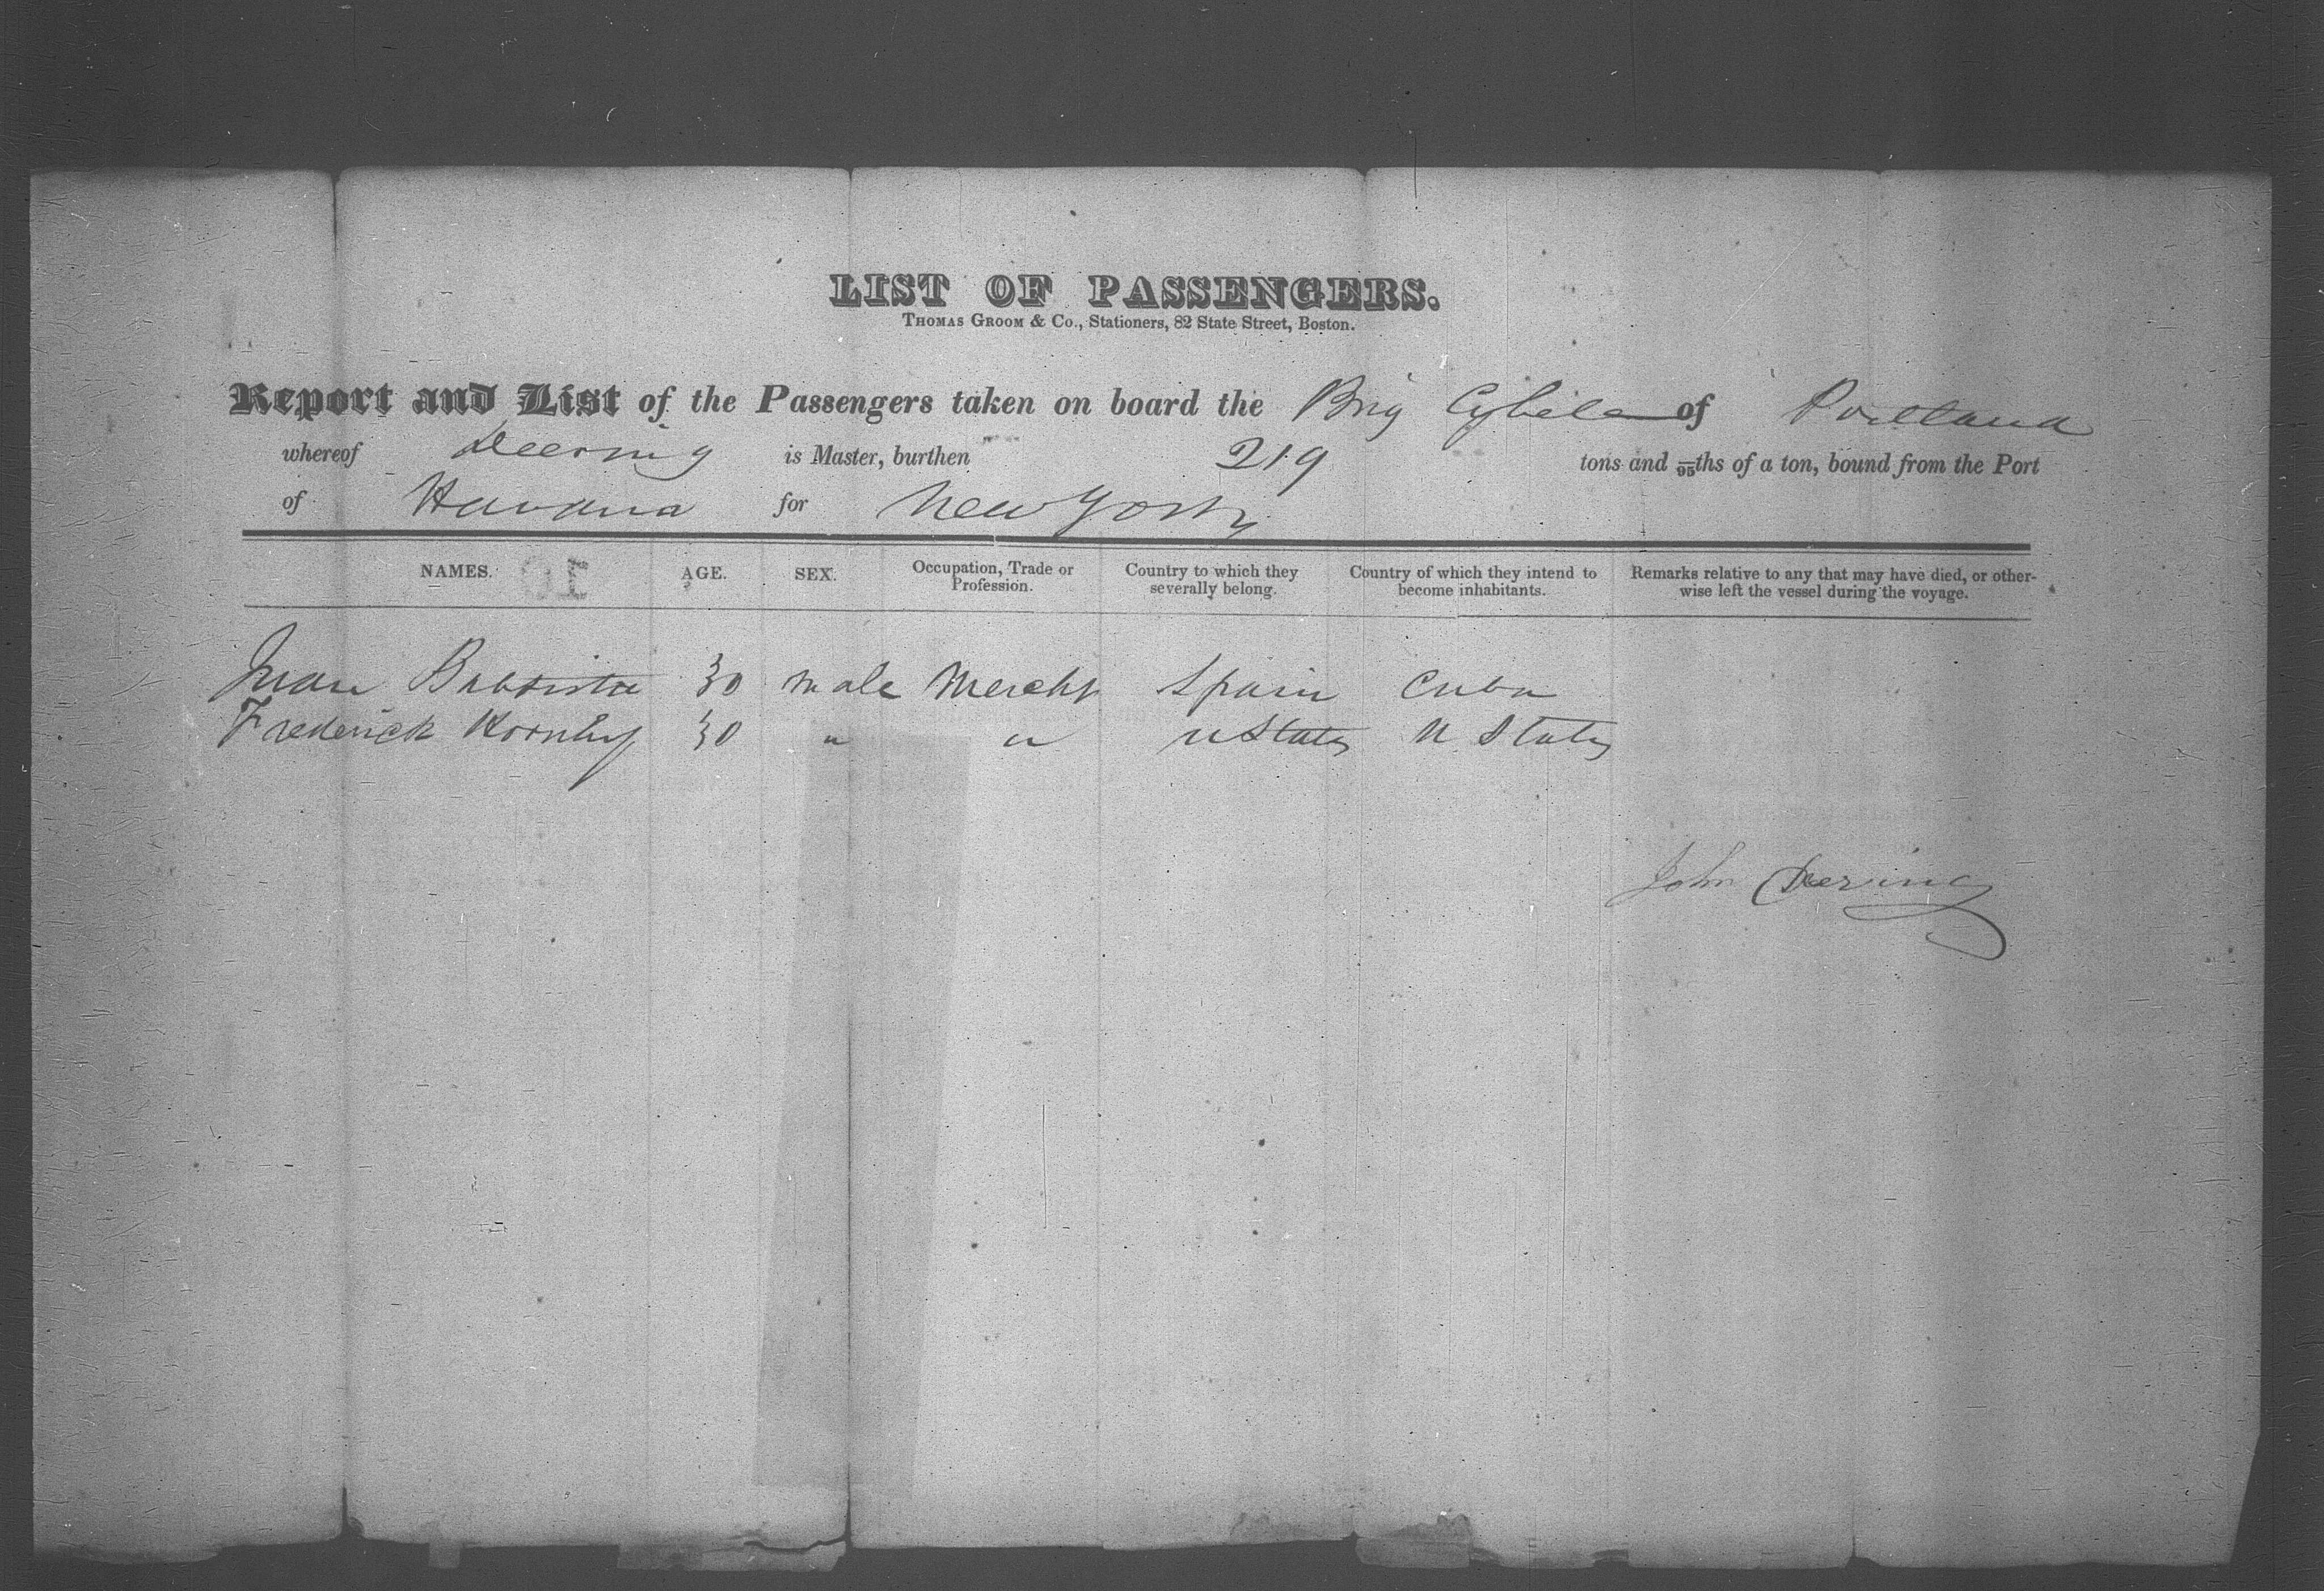 LIST OF PASSENGERS.
THOMAS GROOM & Co., Stationers, 82 State Street, Boston.
Report and List of the Passengers taken on board the Brig Cybele of Portland
whereof Deering is Master, burthen 219 tons and /95ths of a ton, bound from the Port
of Havana for New York
NAMES. AGE. SEX. Occupation, Trade or Profession. Country to which they severally belong. Country of which they intend to become inhabitants. Remarks relative to any that may have died, or otherwise left the vessel during the voyage.
Juan Babtista 30 male Mercht Spain Cuba
Frederick 30 " " U States U States
John Deering